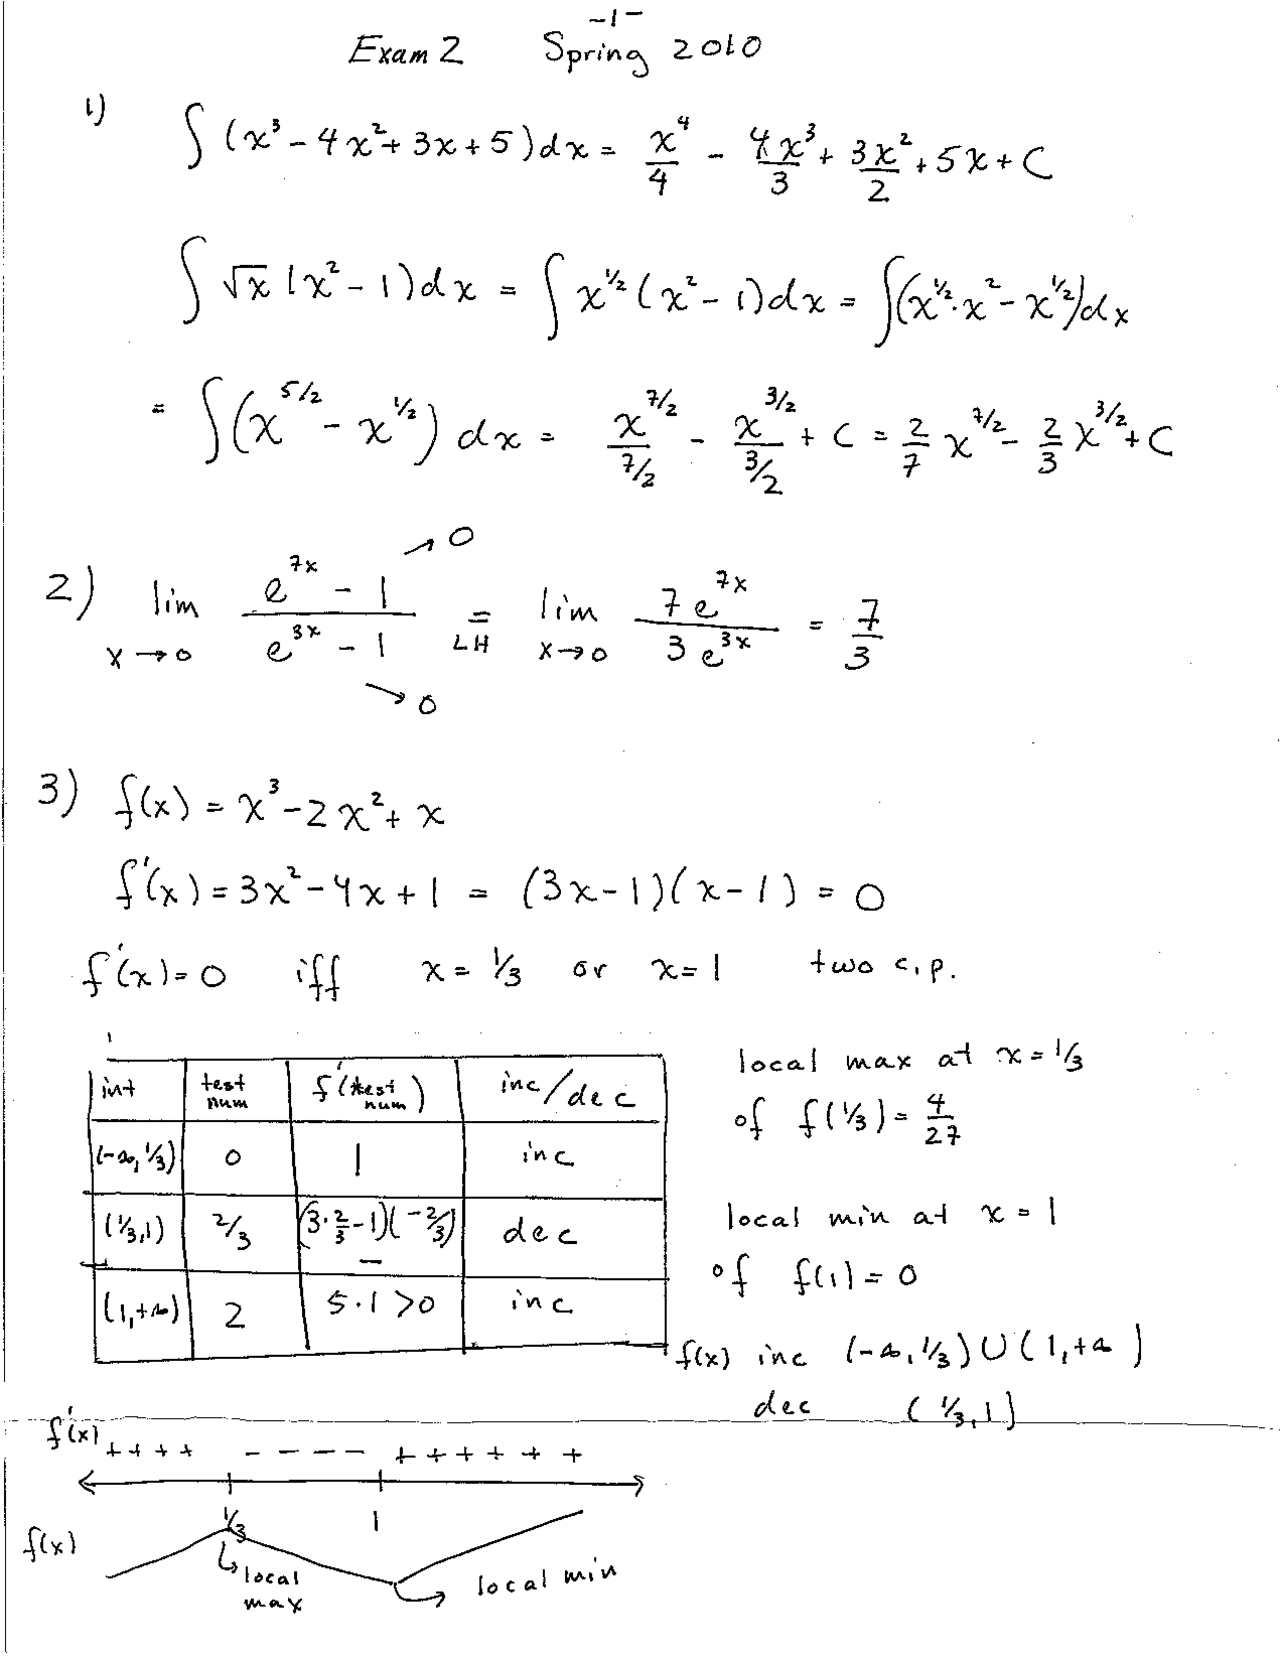 -1-
Exam 2 Spring 2010
1) ∫ (x³ - 4x² + 3x + 5) dx = x⁴/4 - 4x³/3 + 3x²/2 + 5x + C
∫ √x (x² - 1) dx = ∫ x^(1/2) (x² - 1) dx = ∫ (x^(1/2) · x² - x^(1/2)) dx
= ∫ (x^(5/2) - x^(1/2)) dx = x^(7/2)/(7/2) - x^(3/2)/(3/2) + C = 2/7 x^(7/2) - 2/3 x^(3/2) + C
2) lim x→0 (e^(7x) - 1 → 0)/(e^(3x) - 1 → 0) =LH lim x→0 7e^(7x)/3e^(3x) = 7/3
3) f(x) = x³ - 2x² + x
f'(x) = 3x² - 4x + 1 = (3x-1)(x-1) = 0
f'(x) = 0 iff x = 1/3 or x = 1 two c.p.
int test num f'(test num) inc/dec
(-∞, 1/3) 0 1 inc
(1/3, 1) 2/3 (3·2/3 - 1)(-2/3) - dec
(1, +∞) 2 5·1 > 0 inc
local max at x = 1/3
of f(1/3) = 4/27
local min at x = 1
of f(1) = 0
f(x) inc (-∞, 1/3) ∪ (1, +∞)
dec (1/3, 1)
f'(x) + + + + - - - - + + + + + +
1/3 1
f(x)
local max
local min